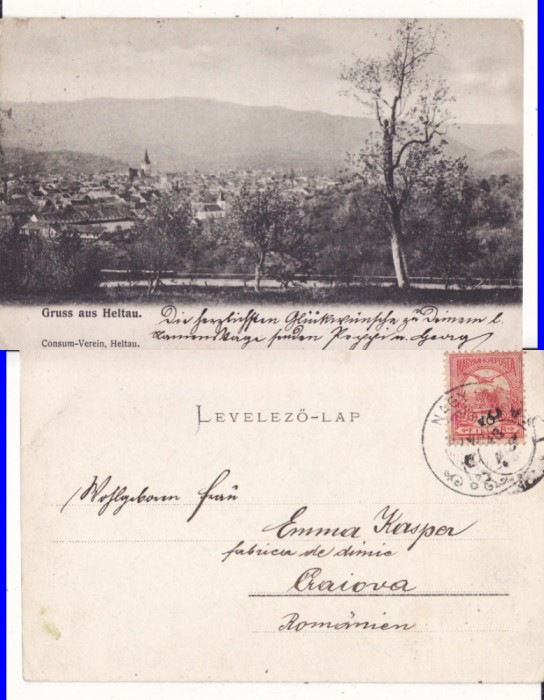 Gruss aus Heltau.
Die herzlichsten Glückwünsche zu Deinem l.
Namenstage senden Peppi u. Georg
Consum-Verein, Heltau.
LEVELEZŐ-LAP
MAGYAR KIR. POSTA
NAGY
Wohlgeboren Frau
Emma Kasper
fabrica de dimie
Craiova
Romänien